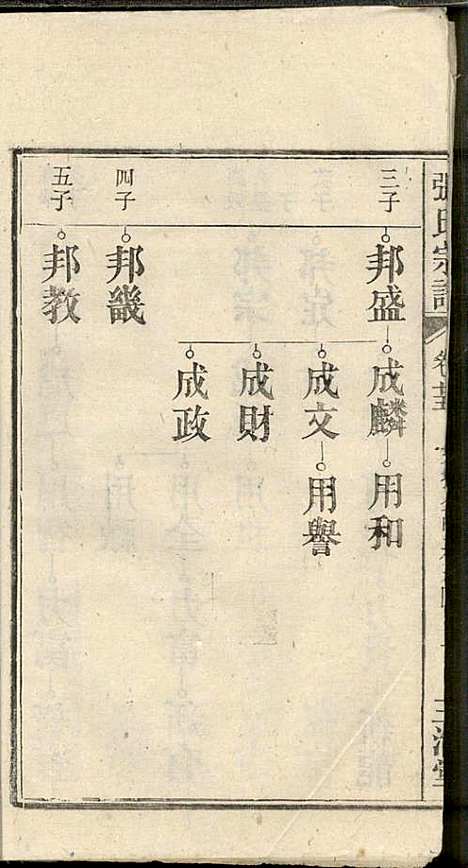 張氏宗譜
三子
邦盛
成麟
用和
成文
用譽
成財
成政
四子
邦畿
五子
邦教